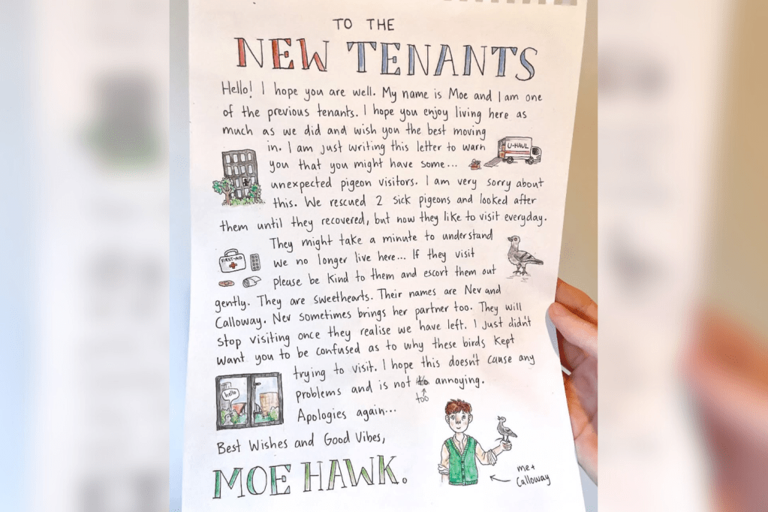 TO THE
NEW TENANTS
Hello! I hope you are well. My name is Moe and I am one
of the previous tenants. I hope you enjoy living here as
much as we did and wish you the best moving
in. I am just writing this letter to warn
U-HAUL
you that you might have some...
unexpected pigeon visitors. I am very sorry about
this. We rescued 2 sick pigeons and looked after
them until they recovered, but now they like to visit everyday.
They might take a minute to understand
FIRST-AID
we no longer live here... If they visit
please be kind to them and escort them out
gently. They are sweethearts. Their names are Nev and
Calloway. Nev sometimes brings her partner too. They will
stop visiting once they realise we have left. I just didn't
want you to be confused as to why these birds kept
trying to visit. I hope this doesn't cause any
hello
problems and is not to annoying.
too
Apologies again...
Best Wishes and Good Vibes,
MOE HAWK.
me+
Calloway